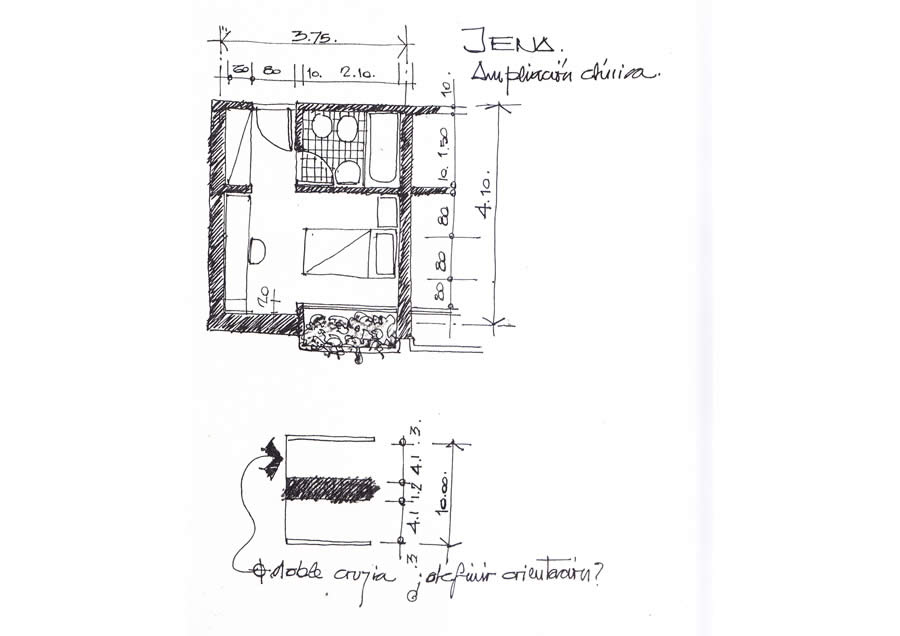 JENA.
Ampliación clínica.
3.75.
80 10. 2.10.
10.
1.50
10.
80
80
80
4.10.
20
.3.
4.1
1.2
4.1
.3
10.00.
doble crujía ¿definir orientación?